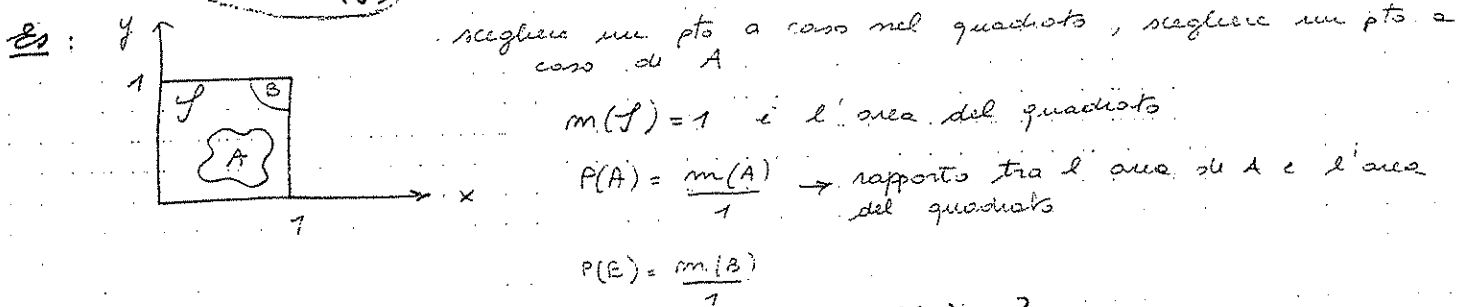 Es : y scegliere un pto a caso nel quadrato, scegliere un pto a
caso di A
1 S B
m(S) = 1 è l'area del quadrato
A
P(A) = m(A)/1 → rapporto tra l'area di A e l'area
del quadrato
x
1
P(E) = m(B)/1